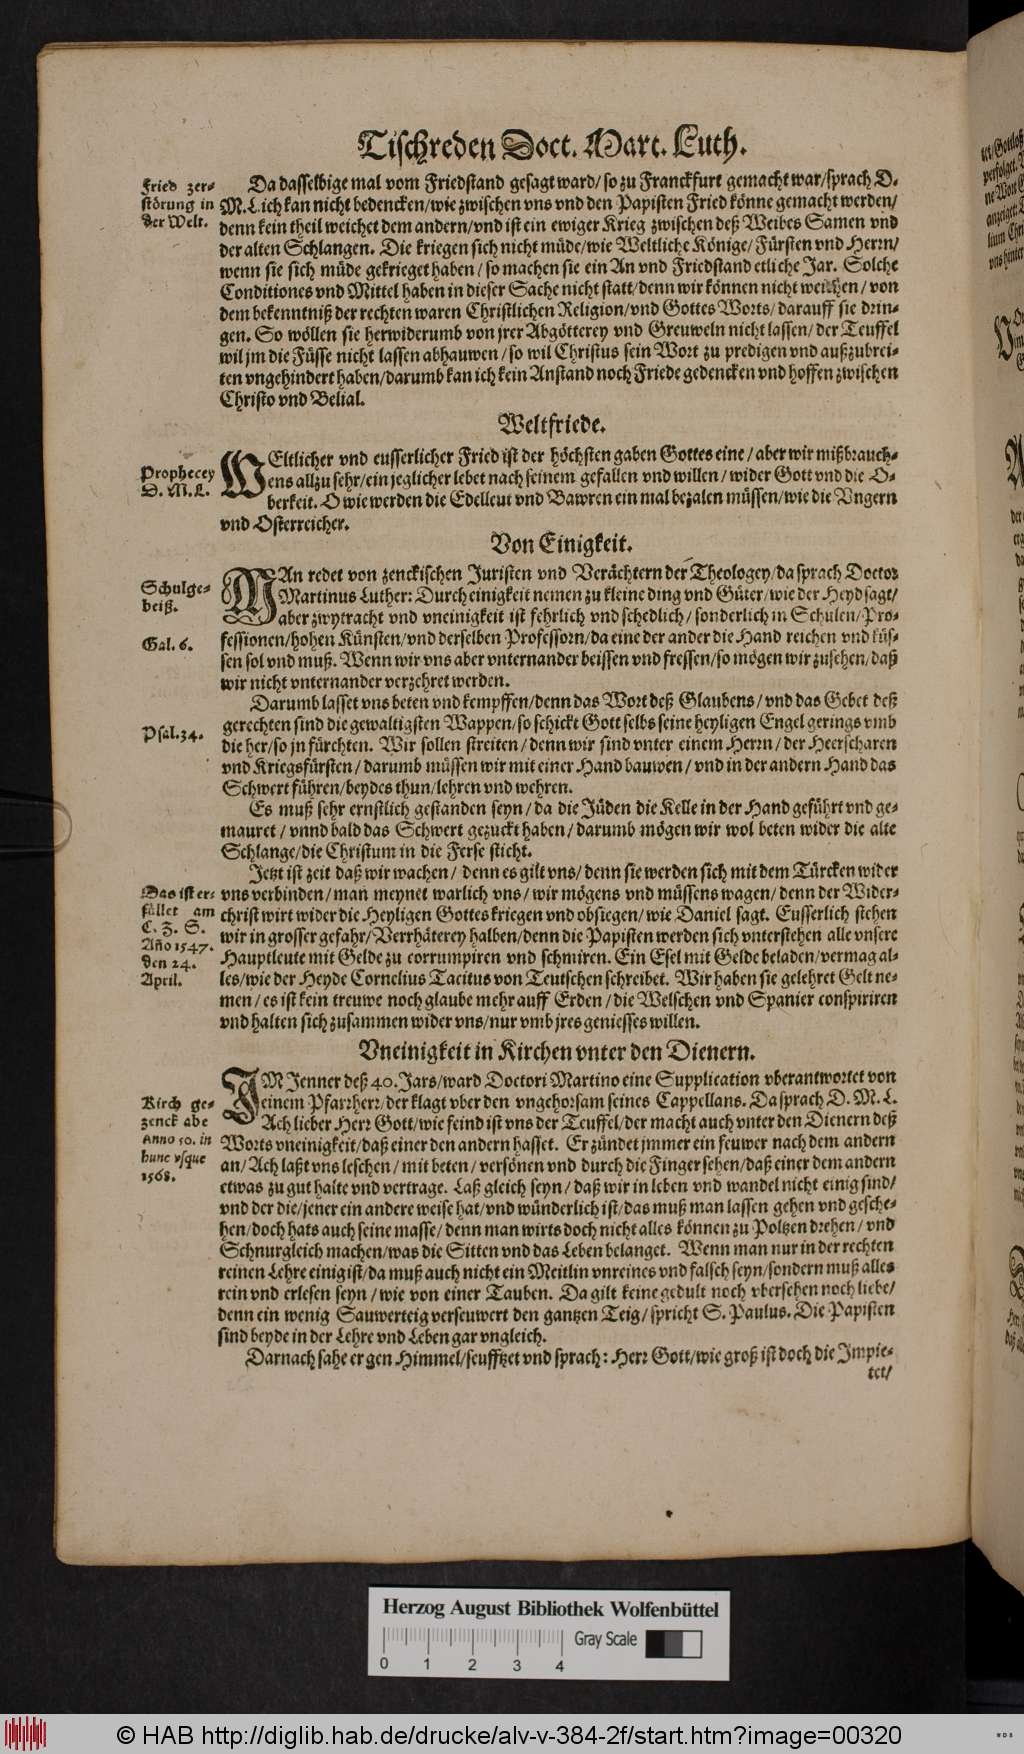 Tischreden Doct. Mart. Luth.
Fried zer-
störung in
der Welt.
Da dasselbige mal vom Friedstand gesagt ward/ so zu Franckfurt gemacht war/ sprach D.
M. L. ich kan nicht bedencken/ wie zwischen vns vnd den Papisten Fried könne gemacht werden/
denn kein theil weichet dem andern/ vnd ist ein ewiger Krieg zwischen deß Weibes Samen vnd
der alten Schlangen. Die kriegen sich nicht müde/ wie Weltliche Könige/ Fürsten vnd Herrn/
wenn sie sich müde gekrieget haben/ so machen sie ein An vnd Friedstand etliche Jar. Solche
Conditiones vnd Mittel haben in dieser Sache nicht statt/ denn wir können nicht weichen/ von
dem bekenntniß der rechten waren Christlichen Religion/ vnd Gottes Worts/ darauff sie drin-
gen. So wöllen sie herwiderumb von jrer Abgötterey vnd Greuweln nicht lassen/ der Teuffel
wil jm die Füsse nicht lassen abhauwen/ so wil Christus sein Wort zu predigen vnd außzubrei-
ten vngehindert haben/ darumb kan ich kein Anstand noch Friede gedencken vnd hoffen zwischen
Christo vnd Belial.
Weltfriede.
Prophecey
D. M. L.
WEltlicher vnd eusserlicher Fried ist der höchsten gaben Gottes eine/ aber wir mißbrauch-
ens allzu sehr/ ein jeglicher lebet nach seinem gefallen vnd willen/ wider Gott vnd die O-
berkeit. O wie werden die Edelleut vnd Bawren ein mal bezalen müssen/ wie die Vngern
vnd Osterreicher.
Von Einigkeit.
Schulge-
beiß.
Gal. 6.
MAn redet von zenckischen Juristen vnd Verächtern der Theologey/ da sprach Doctor
Martinus Luther: Durch einigkeit nemen zu kleine ding vnd Güter/ wie der Heyd sagt/
aber zwytracht vnd vneinigkeit ist fehrlich vnd schedlich/ sonderlich in Schulen/ Pro-
fessionen/ hohen Künsten/ vnd derselben Professorn/ da eine der ander die Hand reichen vnd küs-
sen sol vnd muß. Wenn wir vns aber vnternander beissen vnd fressen/ so mögen wir zusehen/ daß
wir nicht vnternander verzehret werden.
Psal. 34.
Darumb lasset vns beten vnd kempffen/ denn das Wort deß Glaubens/ vnd das Gebet deß
gerechten sind die gewaltigsten Wappen/ so schickt Gott selbs seine heyligen Engel gerings vmb
die her/ so jn fürchten. Wir sollen streiten/ denn wir sind vnter einem Herrn/ der Heerscharen
vnd Kriegsfürsten/ darumb müssen wir mit einer Hand bauwen/ vnd in der andern Hand das
Schwert führen/ beydes thun/ lehren vnd wehren.
Es muß sehr ernstlich gestanden seyn/ da die Jüden die Kelle in der Hand geführt vnd ge-
mauret/ vnnd bald das Schwert gezuckt haben/ darumb mögen wir wol beten wider die alte
Schlange/ die Christum in die Ferse sticht.
Das ist er-
füllet am
C. Z. S.
Año 1547.
den 24.
April.
Jetzt ist zeit daß wir wachen/ denn es gilt vns/ denn sie werden sich mit dem Türcken wider
vns verbinden/ man meynet warlich vns/ wir mögens vnd müssens wagen/ denn der Wider-
christ wirt wider die Heyligen Gottes kriegen vnd obsiegen/ wie Daniel sagt. Eusserlich stehen
wir in grosser gefahr/ Verrhäterey halben/ denn die Papisten werden sich vnterstehen alle vnsere
Hauptleute mit Gelde zu corrumpiren vnd schmiren. Ein Esel mit Gelde beladen/ vermag al-
les/ wie der Heyde Cornelius Tacitus von Teutschen schreibet. Wir haben sie gelehret Gelt ne-
men/ es ist kein treuwe noch glaube mehr auff Erden/ die Welschen vnd Spanier conspiriren
vnd halten sich zusammen wider vns/ nur vmb jres geniesses willen.
Vneinigkeit in Kirchen vnter den Dienern.
Kirch ge-
zenck abe
Anno 50. in
hunc vsque
1568.
IM Jenner deß 40. Jars/ ward Doctori Martino eine Supplication vberantwortet von
einem Pfarrherr/ der klagt vber den vngehorsam seines Cappellans. Da sprach D. M. L.
Ach lieber Herr Gott/ wie feind ist vns der Teuffel/ der macht auch vnter den Dienern deß
Worts vneinigkeit/ daß einer den andern hasset. Er zündet jmmer ein feuwer nach dem andern
an/ Ach laßt vns leschen/ mit beten/ versönen vnd durch die Finger sehen/ daß einer dem andern
etwas zu gut halte vnd vertrage. Laß gleich seyn/ daß wir in leben vnd wandel nicht einig sind/
vnd der die/ jener ein andere weise hat/ vnd wünderlich ist/ das muß man lassen gehen vnd gesche-
hen/ doch hats auch seine masse/ denn man wirts doch nicht alles können zu Poltzen drehen/ vnd
Schnurgleich machen/ was die Sitten vnd das Leben belanget. Wenn man nur in der rechten
reinen Lehre einig ist/ da muß auch nicht ein Meitlin vnreines vnd falsch seyn/ sondern muß alles
rein vnd erlesen seyn/ wie von einer Tauben. Da gilt keine gedult noch vbersehen noch liebe/
denn ein wenig Sauwerteig verseuwert den gantzen Teig/ spricht S. Paulus. Die Papisten
sind beyde in der Lehre vnd Leben gar vngleich.
Darnach sahe er gen Himmel/ seufftzet vnd sprach: Herr Gott/ wie groß ist doch die Impie-
tet/
Herzog August Bibliothek Wolfenbüttel
0 1 2 3 4
Gray Scale
© HAB http://diglib.hab.de/drucke/alv-v-384-2f/start.htm?image=00320